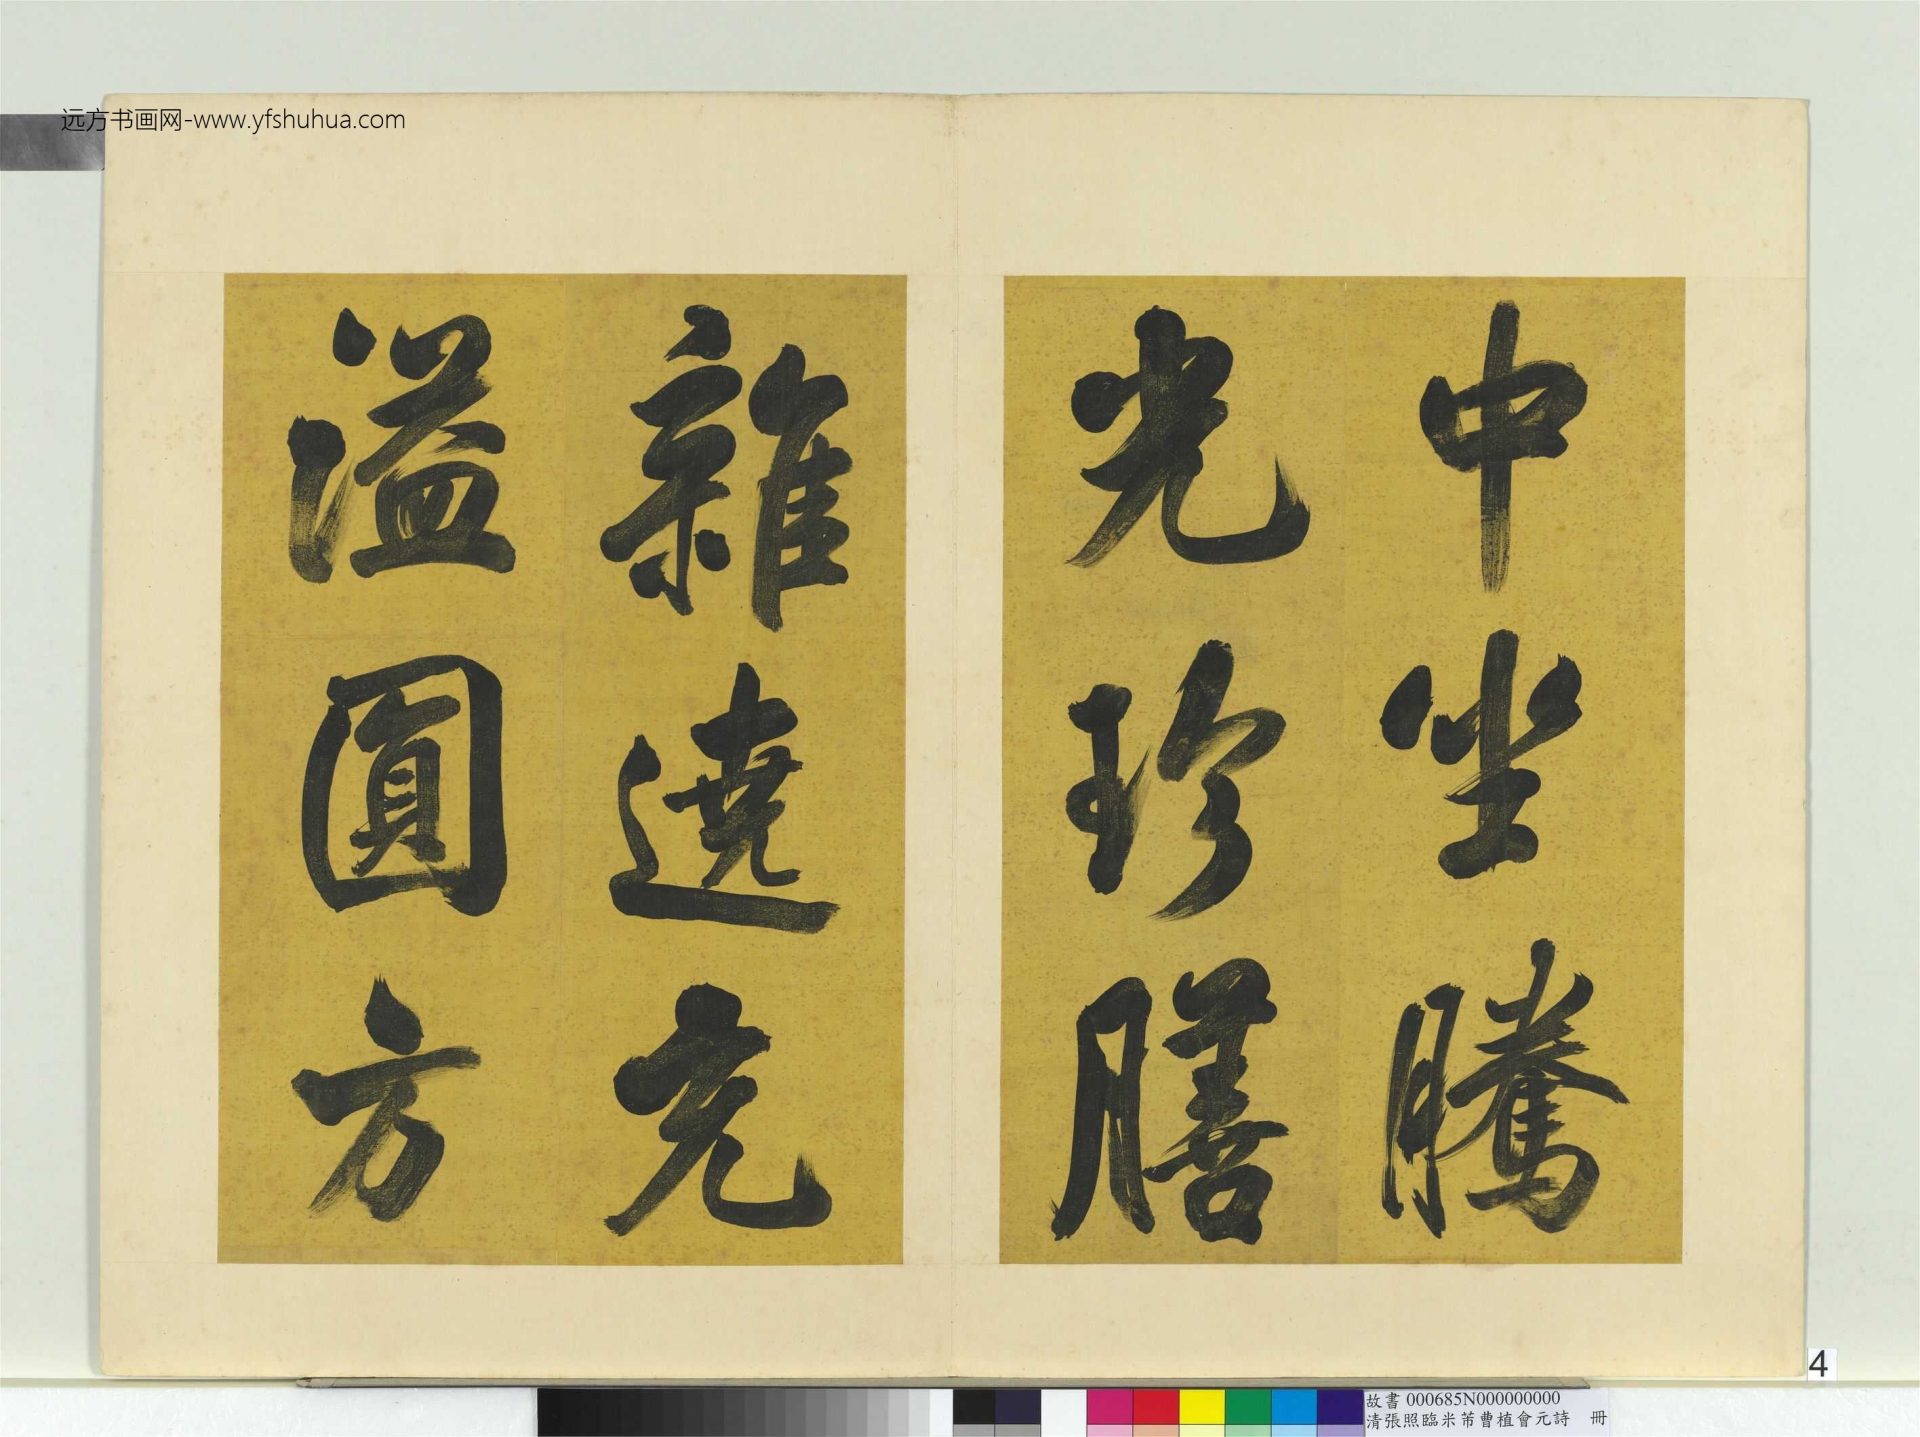 远方书画网-www.yfshuhua.com
中坐騰
光珍膳
雜遶充
溢圓方
4
故書 000685N000000000
清張照臨米芾曹植會元詩 冊